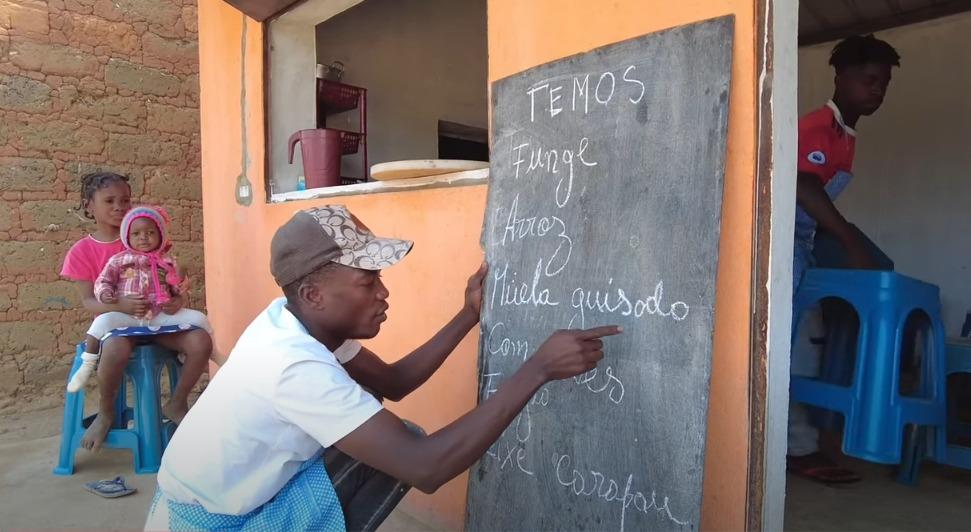 TEMOS
Funge
Arroz
Müela guisodo
Com
Carapau